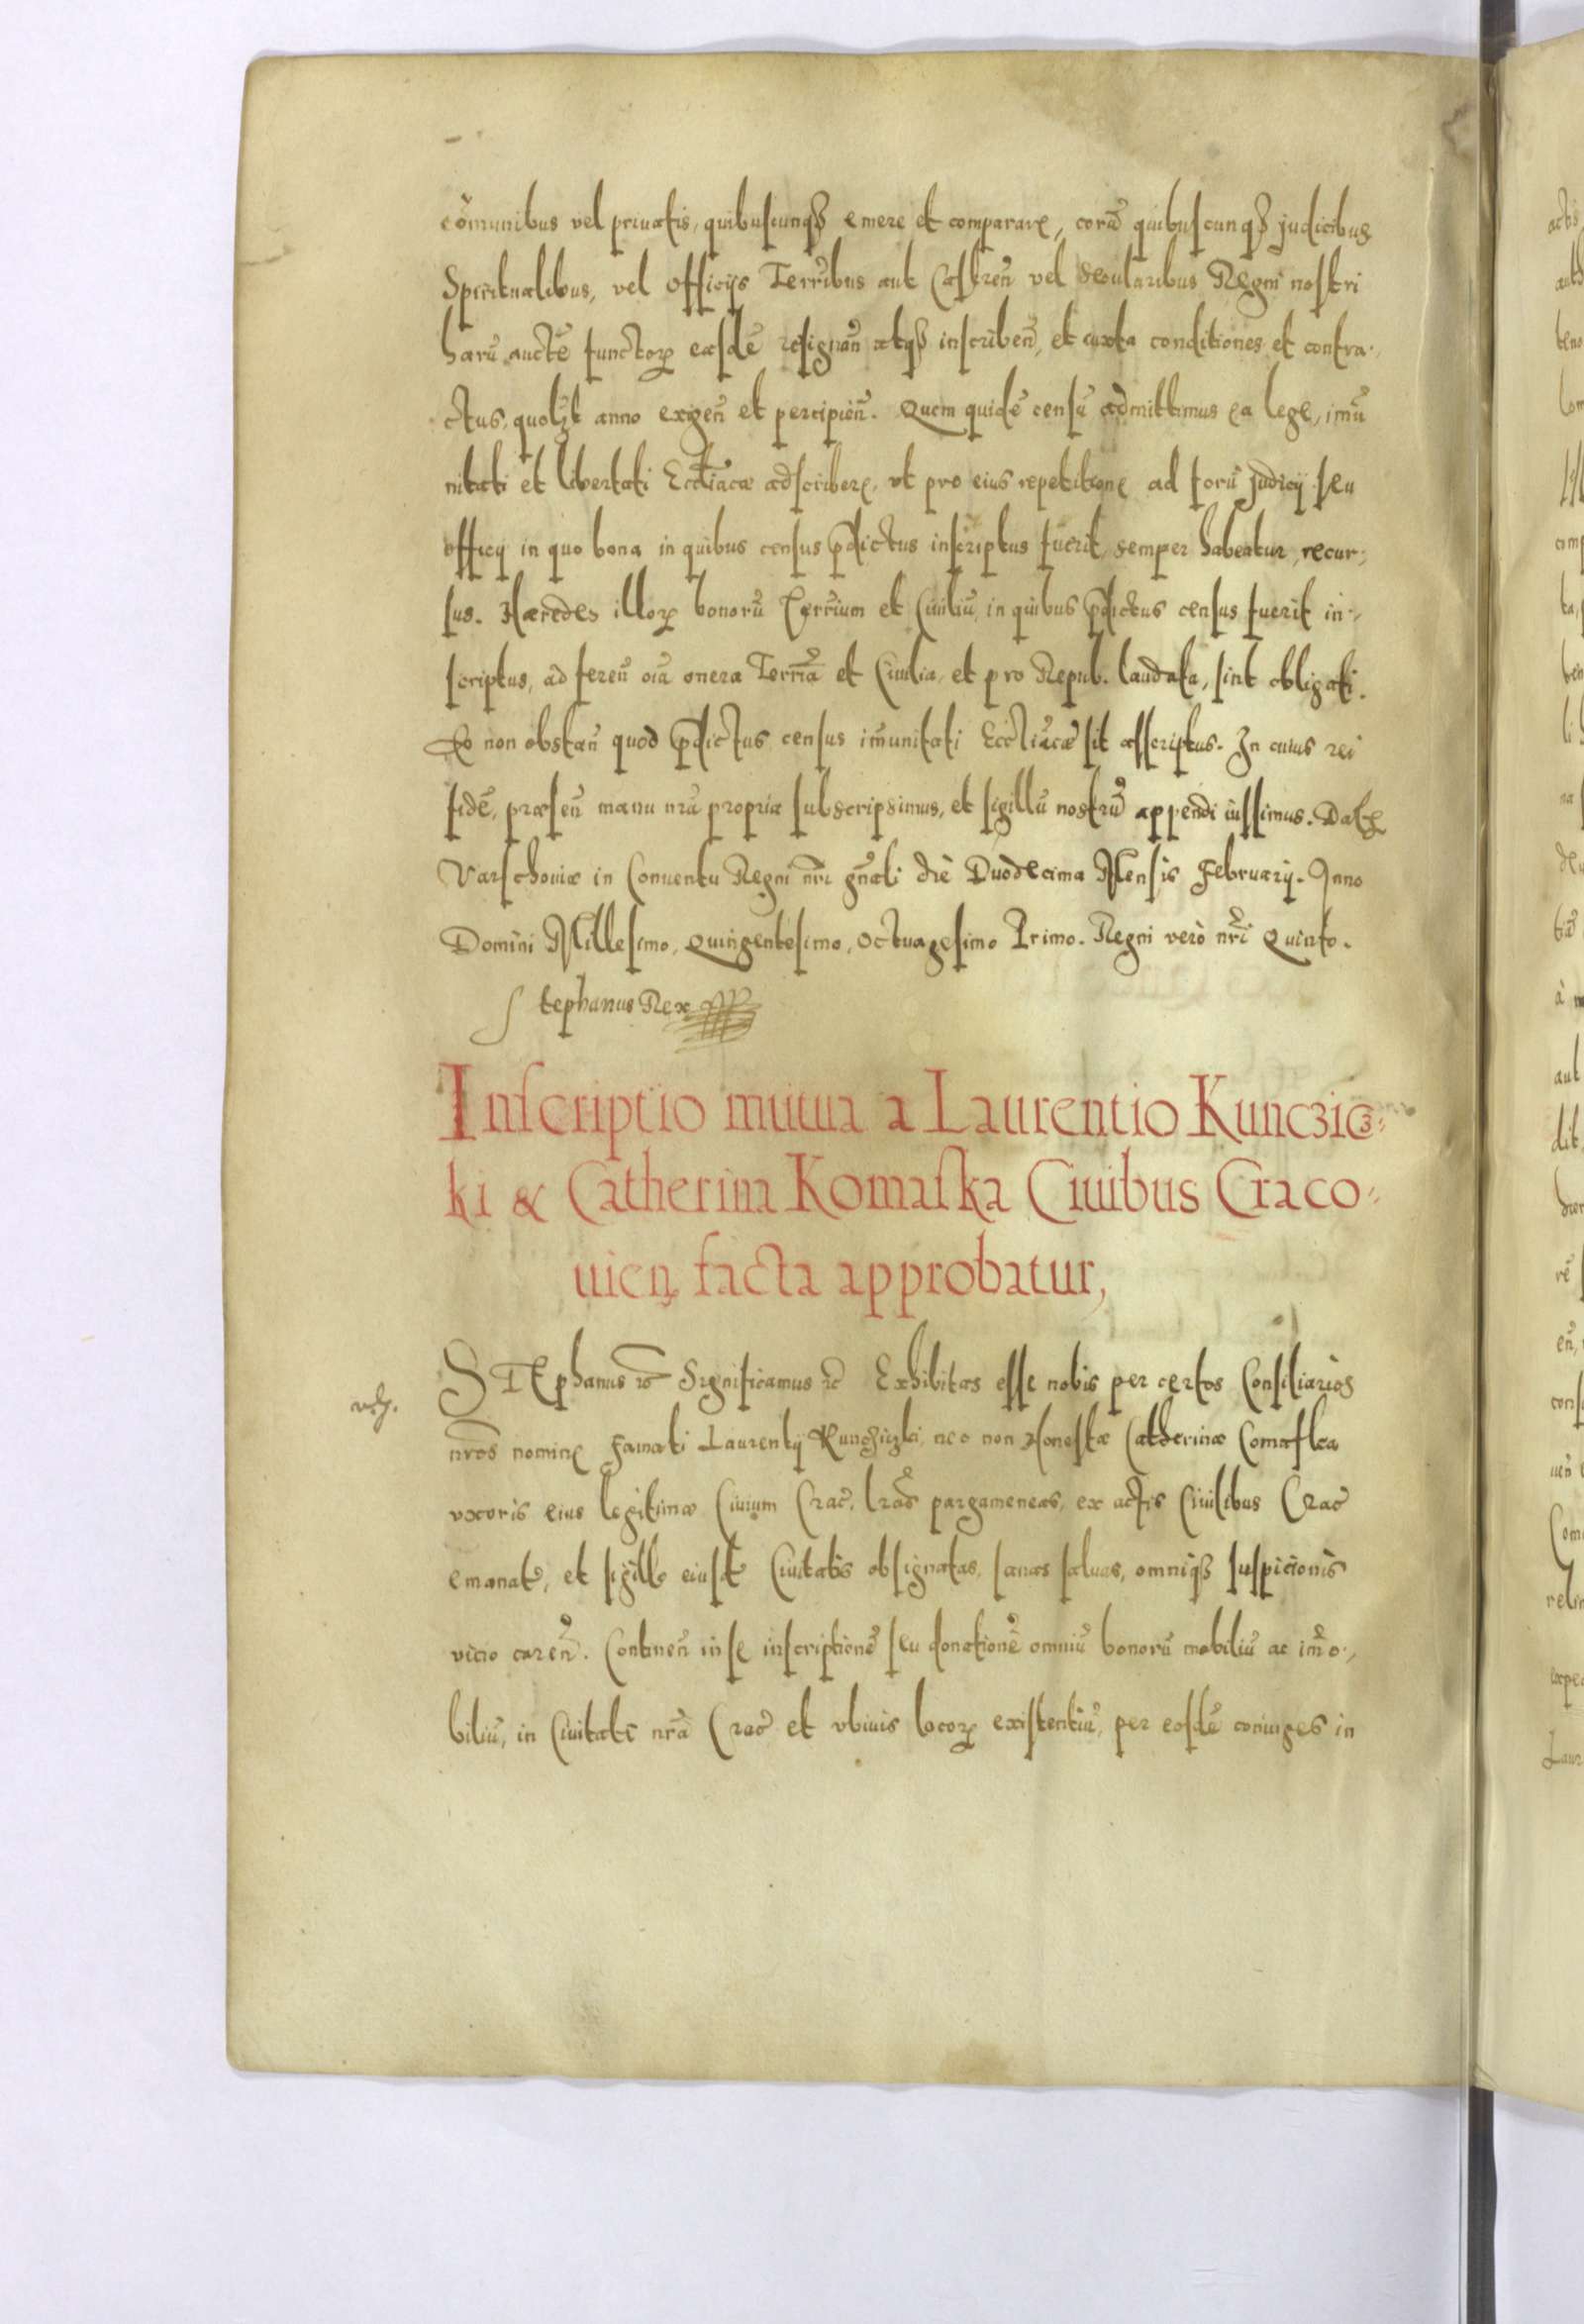 cõmunibus vel priuatis, quibuscunqȝ emere et comparare, corã quibuscunqȝ judicibus
Spiritualibus, vel officijs Terr̃ibus aut Castreñ vel secularibus Regni nostri
harũ auctẽ functorꝝ easdẽ resignañ atqȝ inscribeñ, et iuxta conditiones et contra-
ctus, quolȝt anno exigeñ et percipieñ. Quem quidẽ censũ admittimus ea lege, imũ
nitati et libertati Eccl̃iacæ adscribere, vt pro eius repetitione ad forũ judicij seu
officij in quo bona in quibus census p̃dictus inscriptus fuerit, semper habeatur, recur-
sus. Hæredes illorꝝ bonorũ Terr̃ium et Ciuiliũ, in quibus p̃dictus census fuerit in-
scriptus, ad fereñ oĩa onera Terr̃ia et Ciuilia, et pro Repub. laudata, sint obligati.
Eo non obstañ quod p̃dictus census im̃unitati Eccl̃iacæ sit asscriptus. In cuius rei
fidẽ, præseñ manu nr̃a propria subscripsimus, et sigillũ nostrũ appendi iussimus. Datꝭ
Varschouiæ in Conuentu Regni nr̃i gñali die Duodecima Mensis Februarij. Anno
Domini Millesimo, Quingentesimo, Octuagesimo Primo. Regni verò nr̃i Quinto.
Stephanus Rex
Inscriptio mutua a Laurentio Kunczic-
ki & Catherina Komaska Ciuibus Craco-
uieñ facta approbatur,
STEphanus rc̃ Significamus rc̃ Exhibitas esse nobis per certos Consiliarios
nr̃os nomine Famati Laurentij Kunczizki, nec non Honestæ Catherinæ Comaska
vxoris eius legitimæ Ciuium Crac̃, lr̃as pargameneas, ex actis Ciuilibus Crac̃
emanatas, et sigillo eiusdẽ Ciuitatis obsignatas, sanas saluas, omniqȝ suspicionis
vicio careñ. Contineñ in se inscriptionẽ seu donationẽ omniũ bonorũ mobiliũ ac im̃o-
biliũ, in Ciuitate nr̃a Crac̃ et vbiuis locorꝝ existentiũ, per eosdẽ coniuges in